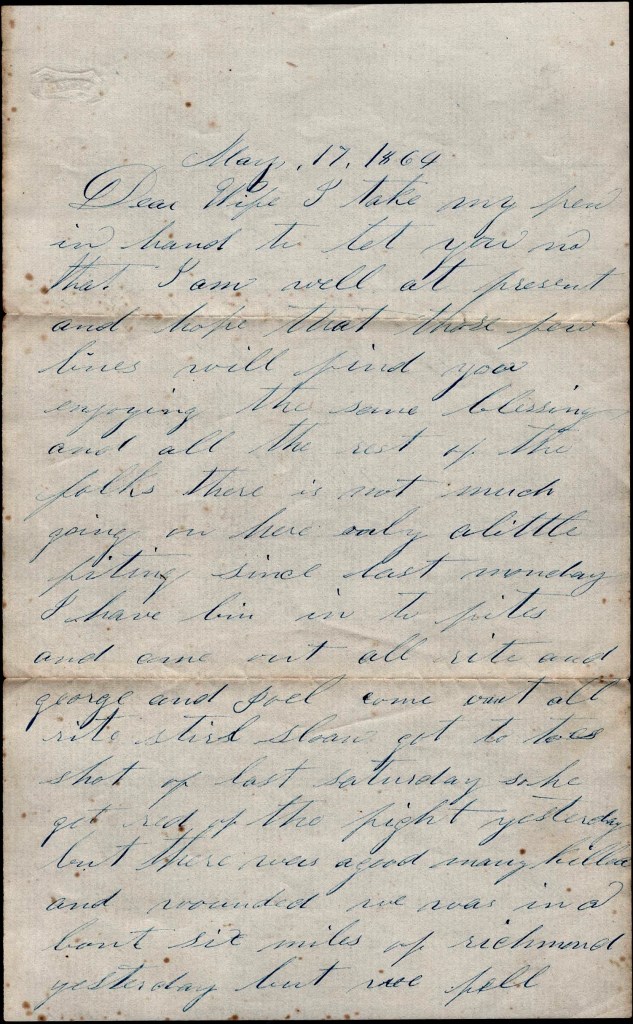 May, 17, 1864
Dear Wife I take my pen
in hand to let you no
that I am well at present
and hope that those few
lines will find you
enjoying the same blessing
and all the rest of the
folks there is not much
going on here only alittle
fiting since last monday
I have bin in to fites
and come out all rite and
george and Joel come out all
rite sloan got to toes
shot of last saturday so he
get red of the fight yesterday
but there was agood many killed
and wounded we was in a
bout six miles of richmond
yesterday but we fell